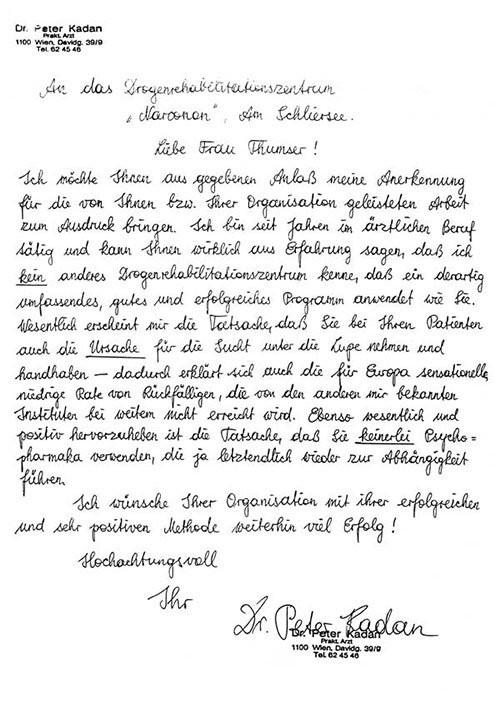 Dr. Peter Kadan
Prakt. Arzt
1100 Wien, Davidg. 39/9
Tel. 62 45 46
An das Drogenrehabilitationszentrum
„Narconon", Am Schliersee.
Liebe Frau Thumser!
Ich möchte Ihnen aus gegebenen Anlaß meine Anerkennung
für die von Ihnen bzw. Ihrer Organisation geleisteten Arbeit
zum Ausdruck bringen. Ich bin seit Jahren im ärztlichen Beruf
tätig und kann Ihnen wirklich aus Erfahrung sagen, daß ich
kein anderes Drogenrehabilitationszentrum kenne, daß ein derartig
umfassendes, gutes und erfolgreiches Programm anwendet wie Sie.
Wesentlich erscheint mir die Tatsache, daß Sie bei Ihren Patienten
auch die Ursache für die Sucht unter die Lupe nehmen und
handhaben – dadurch erklärt sich auch die für Europa sensationelle
niedrige Rate von Rückfälligen, die von den anderen mir bekannten
Instituten bei weitem nicht erreicht wird. Ebenso wesentlich und
positiv hervorzuheben ist die Tatsache, daß Sie keinerlei Psycho=
pharmaka verwenden, die ja letztendlich wieder zur Abhängigkeit
führen.
Ich wünsche Ihrer Organisation mit ihrer erfolgreichen
und sehr positiven Methode weiterhin viel Erfolg!
Hochachtungsvoll
Ihr
Dr. Peter Kadan
Dr. Peter Kadan
Prakt. Arzt
1100 Wien, Davidg. 39/9
Tel. 62 45 46